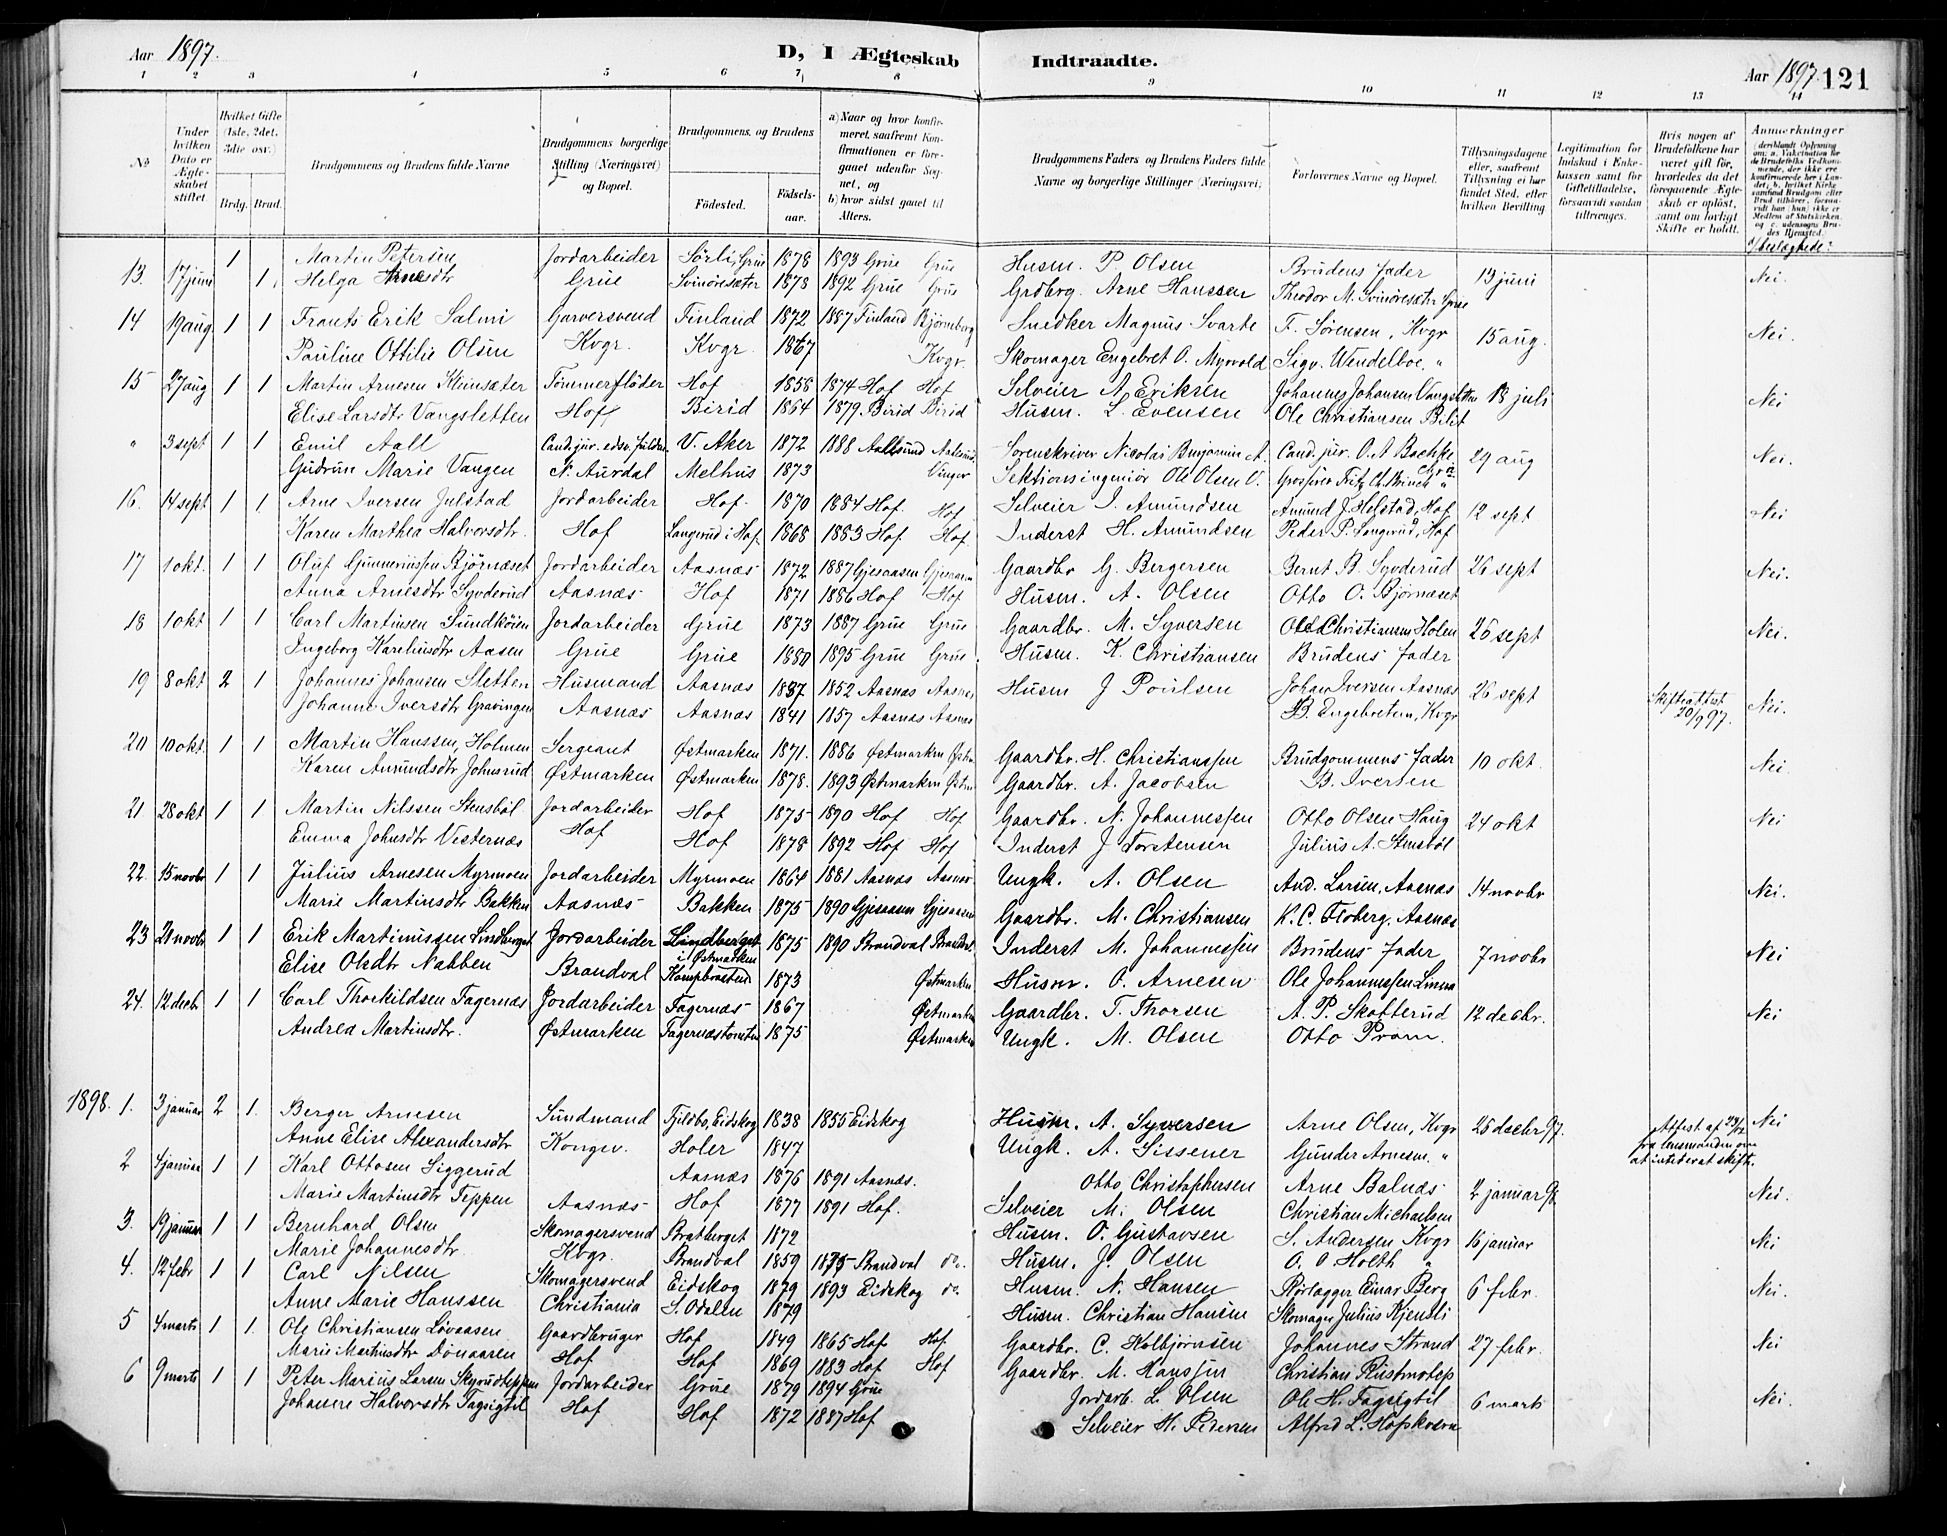 Aar 1897.
D, I Ægteskab Indtraadte.
Aar 1897. 121
1 2 3 4 5 6 7 8 9 10 11 12 13 14
No
Under hvilken Dato er Ægteskabet stiftet.
Hvilket Gifte (1ste, 2det, 3die osv.)
Brdg. Brud.
Brudgommens og Brudens fulde Navne
Brudgommens borgerlige Stilling (Næringsvei) og Bopæl.
Brudgommens og Brudens
Fødested.
Fødselsaar.
a) Naar og hvor konfirmeret, saafremt Konfirmationen er foregaaet udenfor Sognet, og
b) hvor sidst gaaet til Alters.
Brudgommens Faders og Brudens Faders fulde Navne og borgerlige Stillinger (Næringsvei)
Forlovernes Navne og Bopæl.
Tillysningsdagene eller, saafremt Tillysning ei har fundet Sted, efter hvilken Bevilling
Legitimation for Indskud i Enkekassen samt for Giftetilladelse, forsaavidt saadan tiltrænges.
Hvis nogen af Brudefolkene har været gift før, hvorledes da det foregaaende Ægteskab er opløst, samt om lovligt Skifte er holdt.
Anmerkninger (deriblandt Oplysning om: a. Vakcination for de Brudefolks Vedkommende, der ikke ere konfirmerede her i Landet; b. hvilket Kirkesamfund Brudgom eller Brud tilhører, forsaavidt han (hun) ikke er Medlem af Statskirken, og c. udensogns Brudes Hjemsted.)
beslægtede?
13. 17 juni 1 Martin Petersen Jordarbeider Sörli, Grue 1878 1893 Grue Grue Husm. P. Olsen Brudens fader 13 juni Nei.
1 Helga Arnesdtr Grue Svinöresæter 1878 1892 Grue Grue Grdbrg. Arne Hanssen Theodor M. Svinöresæter Grue
14 19 aug 1 1 Frants Erik Salmi Garversvend Finland 1872 1887 Finland Bjørneborg Snedker Magnus Svarte F. Sørensen, Kvgr 15 aug. Nei.
Pauline Ottilie Olsen Kvgr. Kvgr 1867 Kvgr. Skomager Engebret O. Myrvold Sigv. Wendelboe, "
15 27 aug 1 1 Martin Arnesen Kleinsæter Tømmerfløder Hof 1858 1874 Hof Hof Selveier A. Eriksen Johannes Johansen Vangsletten 18 juli Nei
Elise Larsdtr Vangsletten Hof Birid 1864 1879. Birid Birid Husm. L. Evensen Ole Christiansen Bilit
" 3 sept 1 1 Emil Aall Cand. jur. edsv. fuldm. V. Aker 1872 1888 Aalesund Aalesund Sorenskriver Nicolai Benjamin A. Cand. jur. O. A Bachke 29 aug Nei.
Gudrun Marie Vangen N. Aurdal Melhus 1873 Vinger Sektionsingeniør Ole Olsen V. Grosserer Fritz Ch. Brinch "
16. 14 sept 1 1 Arne Iversen Julstad Jordarbeider Hof. 1870 1884 Hof. Hof Selveier I. Amundsen Amund J. Helstad, Hof 12 sept Nei
Karen Marthea Halvorsdtr. Hof Langerud i Hof. 1868 1883 Hof Hof. Inderst H. Amundsen Peder P. Langerud, Hof
17 1 okt. 1 1 Oluf Gunneriussen Bjørnæset Jordarbeider Aasnæs 1872 1887 Gjesaasen Gjesaasen Gaardbr G. Bergersen Bernt B. Syvderud 26 sept Nei.
Anna Arnesdtr Syvderud Aasnæs Hof 1871 1886 Hof Hof Husm. A. Olsen Otto O. Bjørnæset
18 1 okt 1 1 Carl Martinsen Sundkøien Jordarbeider Grue 1873 1887 Grue Grue Gaardbr. M. Syversen Ole Christiansen Holen 26 sept Nei.
Ingeborg Kareliusdtr Aasen Grue Grue 1880 1895 Grue Grue. Husm. K. Christiansen Brudens fader
19 8 okt 2 1 Johannes Johansen Sletten Husmand Aasnæs 1837 1852 Aasnæs Aasnæs Husm J Poulsen Johan Iversen Aasnæs 26 sept Skifteattest 20/9 97. Nei.
Johanne Iversdtr Gravingen Aasnæs Aasnæs 1841 1857 Aasnæs Aasnæs B. Engebretsen, Kvgr
20 10 okt. 1 1 Martin Hanssen, Holmen Sergeant Østmarken 1871. 1886 Østmarken Østm. Gaardbr. H. Christianssen Brudgommens fader 10 okt. Nei.
Karen Amundsdtr Johnsrud Østmarken Østmarken 1878. 1893 Østmarken Østm Gaardbr. A. Jacobsen B. Iversen
21 28 okt 1 1 Martin Nilssen Stensbøl Jordarbeider Hof 1875 1890 Hof Hof Gaardbr. N. Johannessen Otto Olsen Haug 24 okt Nei
Emma Johnsdtr Vesternæs Hof Hof 1878 1892 Hof Hof Inderst J Torstensen Julius A. Stensbøl
22. 15 novbr 1 1 Julius Arnesen Myrmoen Jordarbeider Myrmoen 1864 1881 Aasnæs Aasnæs Ungk. A. Olsen And. Larsen, Aasnæs 14 novbr Nei.
Marie Martinsdtr Bakken Aasnæs Bakken 1875 1890 Gjesaasen Gjesaasen Gaardbr. M. Christiansen K. C. Floberg, Aasnæs
23 21 novbr 1 1 Erik Martinussen Lindberget Jordarbeider Lindberget i Østmarken 1875 1890 Brandval Brandval Inderst M. Johannessen Brudens fader 7 novbr Nei
Elise Olsdtr Nabben Brandval 1873 Østmarken Husm. O. Arnesen Ole Johannessen Linna
24. 12 decb. 1 1 Carl Thorkildsen Fagernæs Jordarbeider Fagernæs 1867 Østmarken Gaardbr. T. Thorsen A. P. Skotterud 12 decbr. Nei
Andrea Martinsdtr. Østmarken Fagernæstomten 1875 Østmarken Ungk. M. Olsen Otto Pram.
1898. 1. 3 januar 2 1. Berger Arnesen Sundmand Fjeldbo, Eidskog 1838 1855 Eidskog Husm. A. Syversen Arne Olsen, Kvgr 26 decbr 97. Attest af 23/12 fra lensmanden om at intet er at skifte. Nei
Anne Elise Alexandersdtr Kongsv. Holer 1847 Ungk. A. Sissener Gunder Arnesen. "
2 4 januar 1 1 Karl Ottosen Siggerud Aasnæs 1876 1891 Aasnæs. Otto Christophersen Arne Balnæs 2 januar 98 Nei.
Marie Martinsdtr Teppen Aasnæs Hof 1877 1891 Hof. Selveier M. Olsen Christian Michaelsen
3. 19 januar 1 1 Bernhard Olsen Skomagersvend Bratberget 1872 Husm. O. Gustavsen S. Andersen Kvgr 16 januar Nei
Marie Johannesdtr. Kvgr. Brandval 1859 1875 Brandval do. Husm. J. Olsen O. O Holth "
4. 12 febr 1 1 Carl Nilsen Skomagersvend Eidskog 1879 1893 Eidskog do Husm. N. Hansen Rørlægger Einar Berg 6 febr. Nei.
Anne Marie Hanssen Christiania S. Odalen 1879 Husm. Christian Hansen Skomager Julius Kjensli
5 4 marts 1 1. Ole Christiansen Løvaasen Gaardbruger Hof 1849 1865 Hof Hof. Gaardbr. C. Kolbjørnsen Johannes Strand 27 febr. Nei
Marie Martinsdtr Dønaasen Hof Hof 1869 1883 Hof Hof Gaardbr. M. Hanssen Christian Rustmotep
6 9 marts 1 1 Peter Marius Larsen Skyrudteppen Jordarbeider Grue 1879 1894 Grue Jordarb. L. Olsen Ole H. Fagsigtil 6 marts Nei.
Johanne Halvorsdtr Fagsigtil Hof Hof 1872 1887 Hof Selveier H. Pedersen Alfred L. Hofskværn